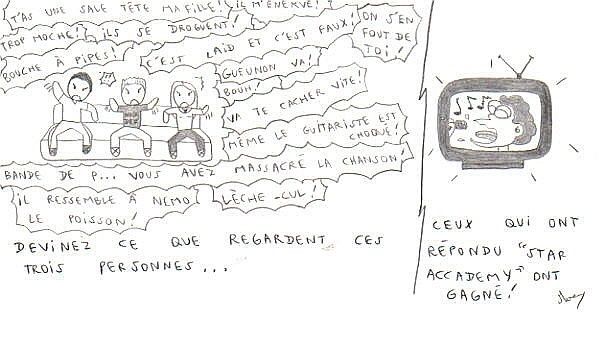 T'AS UNE SALE TÊTE MA FILLE!
IL M'ÉNERVE!
TROP MOCHE!
ILS SE DROGUENT!
ON S'EN
FOUT DE
TOI!
BOUCHE À PIPES!
C'EST LAID ET C'EST FAUX!
GUEUNON VA!
BOUH!
VA TE CACHER VITE!
MÊME LE GUITARISTE EST
CHOQUÉ!
BANDE DE P... VOUS AVEZ MASSACRÉ LA CHANSON!
IL RESSEMBLE À NEMO
LE POISSON!
LÈCHE-CUL!
DEVINEZ CE QUE REGARDENT CES
TROIS PERSONNES...
CEUX QUI ONT
RÉPONDU "STAR
ACCADEMY" ONT
GAGNÉ!